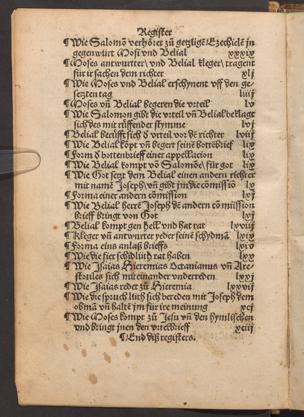 Register
¶Wie Salomō verhöret zū gezügē Ezechielē jn
gegenwürt Mosi vnd Belial xxxix
¶Moses antwurtter vnd Belial kleger tragent
für ir sachen dem richter xlj
¶Wie Moses vnd Belial erschynent vff den ge-
setzten tag
¶Moses vñ Belial begeren die vrteil lv
¶Wie Salomon gibt die vrteil vñ Belial beklagt
sich des mit rüffender stymme lvj
¶Belial berüfft sich d vrteil vor dē richter lviij
¶Wie Belial kōpt vñ begert seinē bottēbrieff lix
¶Form d bottenbrieff einer appellacion lix
¶Wie Belial kompt vō Salomōs für got lix
¶Wie Got setzt dem Belial einen andern richter
mit namē Joseph vñ gibt jm die cōmissiō lx
¶Forma einer andern cōmission lx
¶Wie Belial Joseph de andern cōmission
brieff bringt von Got lx
¶Belial kompt gen hell vnd hat rat
¶Kleger vñ antwurter
¶Forma eins anlaß brieffs
¶Wie die fier schidlüth rat haben lxx
¶Wie Isaias Hieremias Octauianus vñ Are-
stotiles sich mit einander vnderreden lxxj
¶Wie Isaias redet zū Hieremia lxxvij
¶Wie die spruch lüth sich bereden mit Joseph dem
obmā vñ haltē jm für ire meinung xcj
¶Wie Moses kompt zū Jesu vñ den hymlischen
vnd bringt jnen den vrteilbrieff xciij
¶End diß registers.